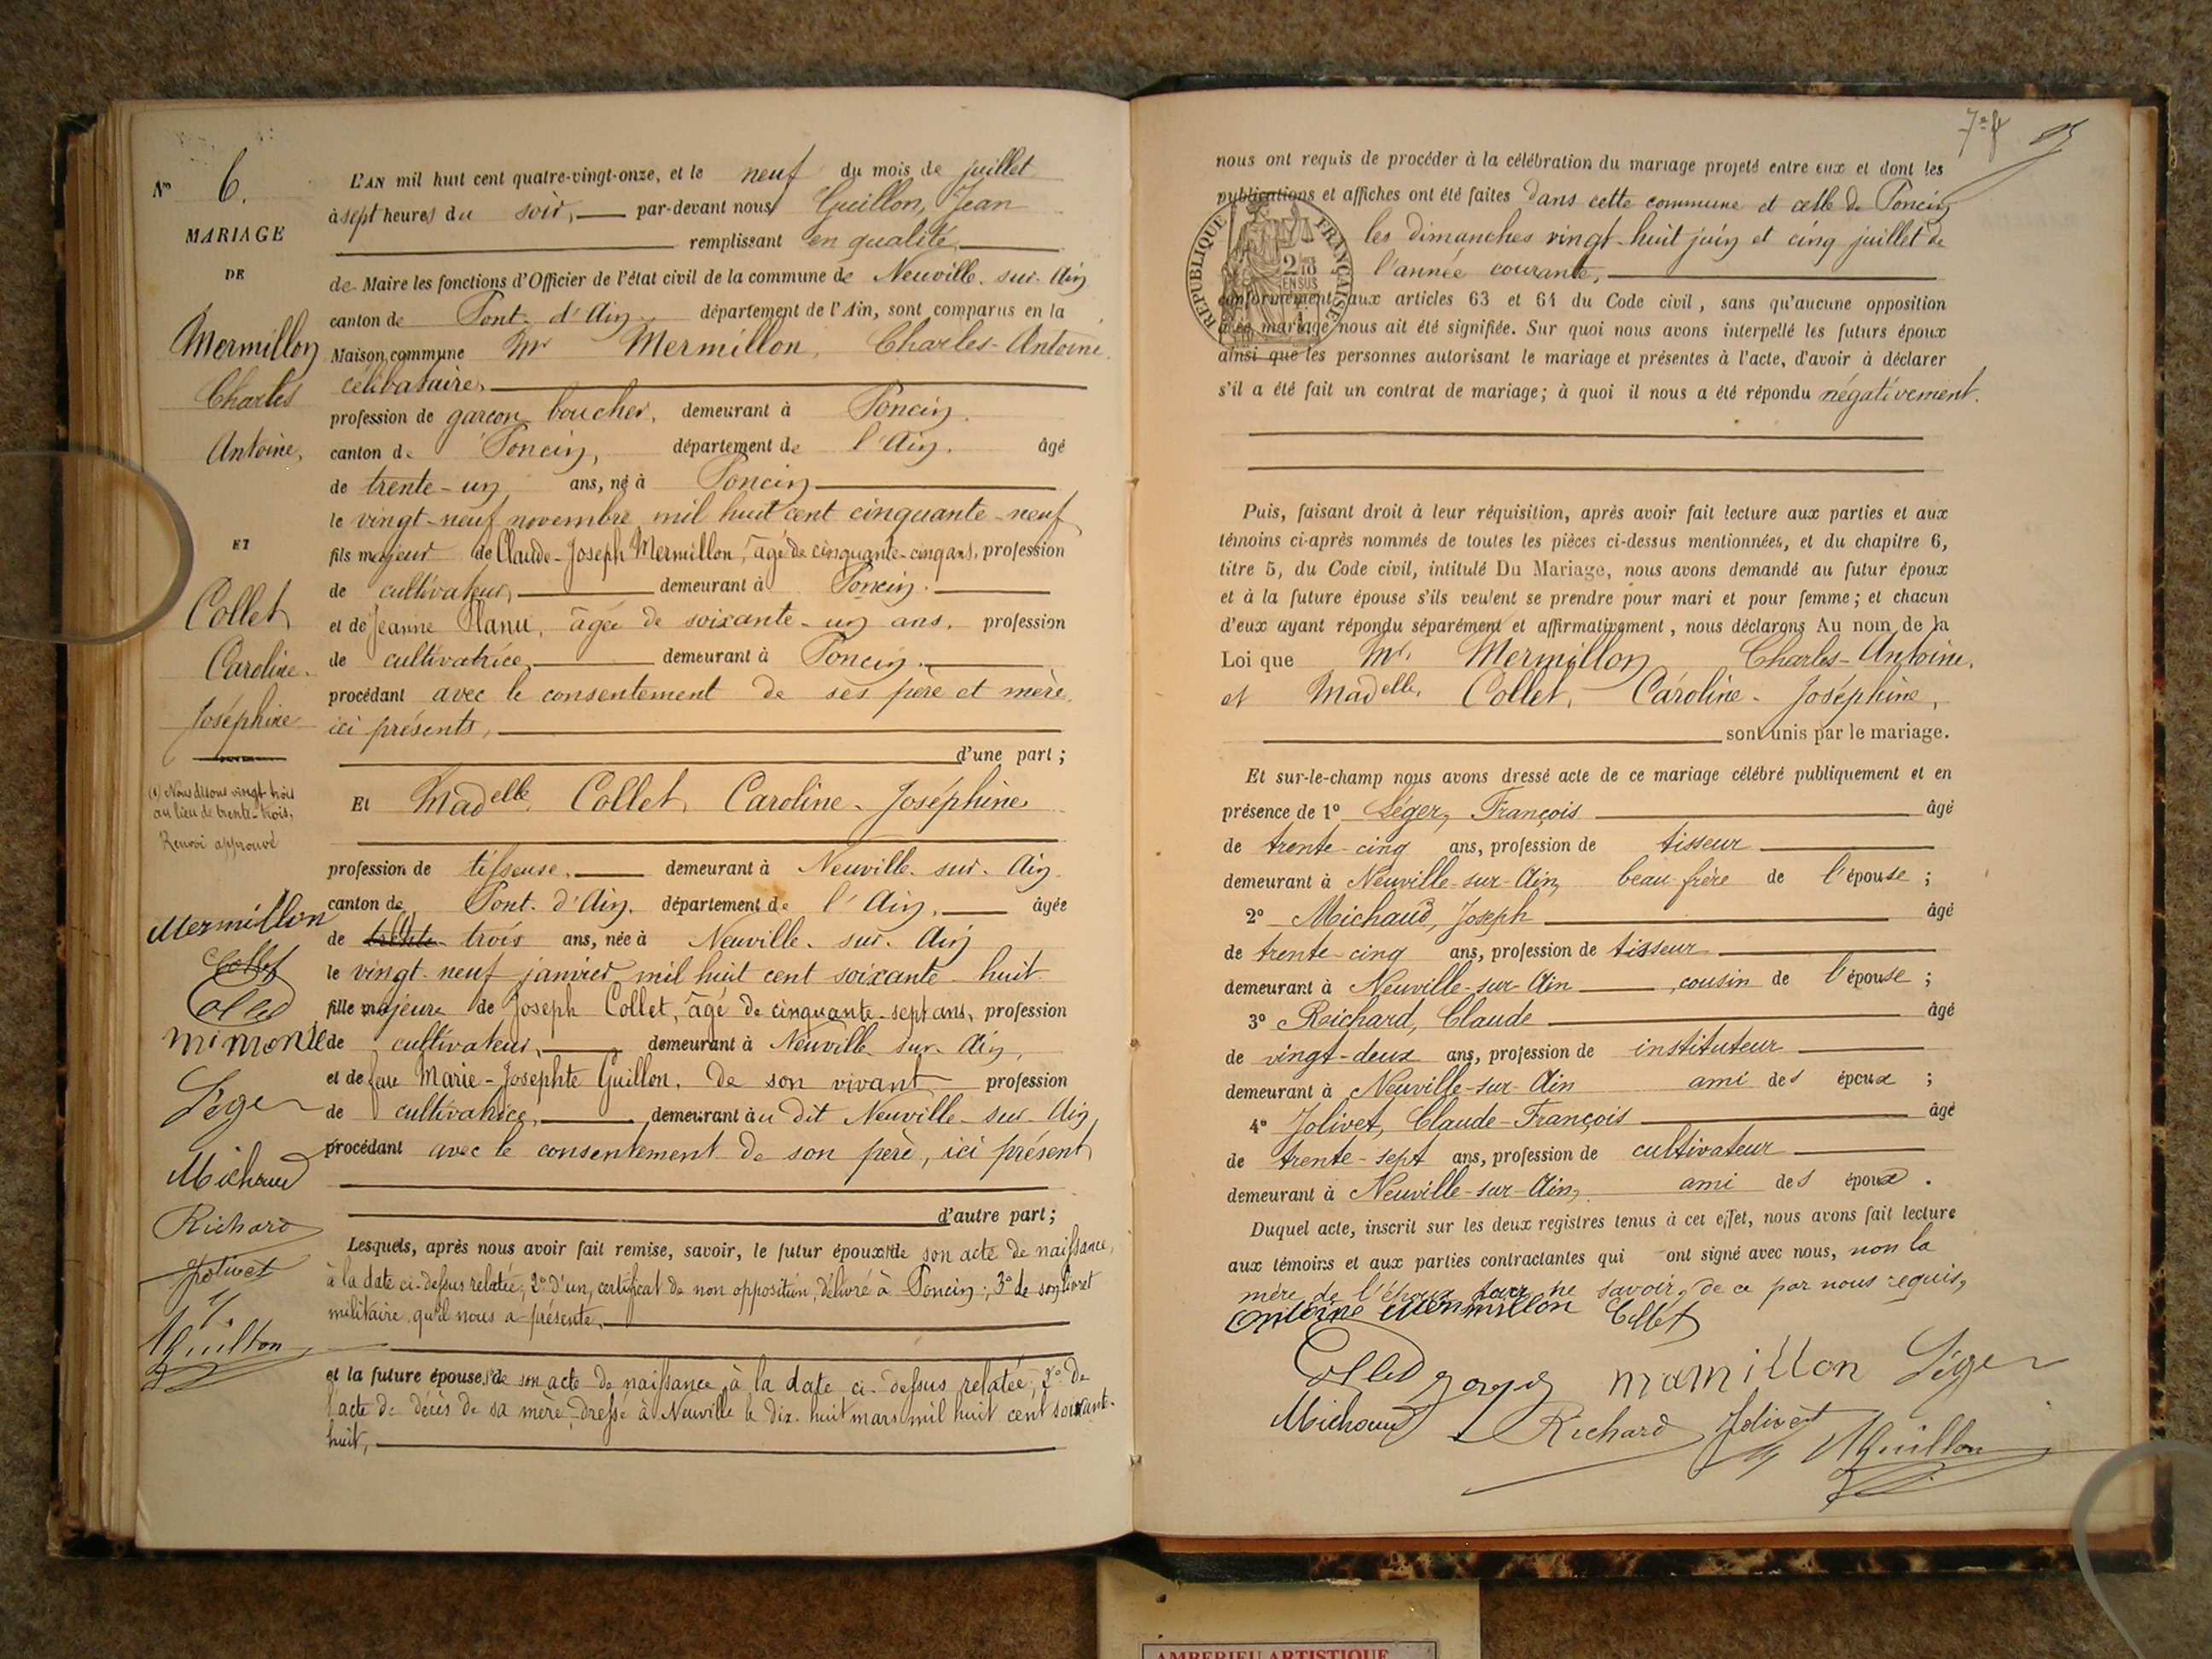 No 6.
MARIAGE
DE
Mermillon
Charles
Antoine,
ET
Collet
Caroline-
Joséphine
(1) Nous disons vingt-trois
au lieu de trente-trois,
Renvoi approuvé
Mermillon
Collet
Collet
Léger
Michaud
Richard
Jolivet
Guillon
L'AN mil huit cent quatre-vingt-onze, et le neuf du mois de juillet
à sept heures du soir, par-devant nous Guillon, Jean
remplissant en qualité
de Maire les fonctions d'Officier de l'état civil de la commune de Neuville-sur-Ain
canton de Pont-d'Ain, département de l'Ain, sont comparus en la
Maison commune Mr Mermillon, Charles-Antoine,
célibataire,
profession de garçon boucher, demeurant à Poncin,
canton de Poncin, département de l'Ain, âgé
de trente-un ans, né à Poncin
le vingt-neuf novembre mil huit cent cinquante-neuf
fils majeur de Claude-Joseph Mermillon, âgé de cinquante-cinq ans, profession
de cultivateur, demeurant à Poncin.
et de Jeanne âgée de soixante-un ans, profession
de cultivatrice, demeurant à Poncin.
procédant avec le consentement de ses père et mère,
ici présents,
d'une part ;
Et Madelle Collet, Caroline-Joséphine
profession de tisseuse, demeurant à Neuville-sur-Ain
canton de Pont-d'Ain, département de l'Ain, âgée
de trente-(1) trois ans, née à Neuville-sur-Ain
le vingt-neuf janvier mil huit cent soixante-huit
fille majeure de Joseph Collet, âgé de cinquante-sept ans, profession
de cultivateur, demeurant à Neuville-sur-Ain,
et de feue Marie-Josephte Guillon, de son vivant profession
de cultivatrice, demeurant au dit Neuville-sur-Ain
procédant avec le consentement de son père, ici présent
d'autre part ;
Lesquels, après nous avoir fait remise, savoir, le futur époux 1° de son acte de naissance,
à la date ci-dessus relatée, 2° d'un certificat de non opposition, délivré à Poncin ; 3° de son livret
militaire qu'il nous a présenté.
et la future épouse, 1° de son acte de naissance à la date ci-dessus relatée ; 2° de
l'acte de décès de sa mère, dressé à Neuville le dix-huit mars mil huit cent soixante-
huit,
REPUBLIQUE FRANÇAISE
2/10
EN SUS
nous ont requis de procéder à la célébration du mariage projeté entre eux et dont les
publications et affiches ont été faites dans cette commune et celle de Poncin
les dimanches vingt-huit juin et cinq juillet de
l'année courante,
conformément aux articles 63 et 64 du Code civil, sans qu'aucune opposition
à ce mariage nous ait été signifiée. Sur quoi nous avons interpellé les futurs époux
ainsi que les personnes autorisant le mariage et présentes à l'acte, d'avoir à déclarer
s'il a été fait un contrat de mariage ; à quoi il nous a été répondu négativement.
Puis, faisant droit à leur réquisition, après avoir fait lecture aux parties et aux
témoins ci-après nommés de toutes les pièces ci-dessus mentionnées, et du chapitre 6,
titre 5, du Code civil, intitulé Du Mariage, nous avons demandé au futur époux
et à la future épouse s'ils veulent se prendre pour mari et pour femme ; et chacun
d'eux ayant répondu séparément et affirmativement, nous déclarons Au nom de la
Loi que Mr. Mermillon Charles-Antoine,
et Madelle. Collet, Caroline-Joséphine,
sont unis par le mariage.
Et sur-le-champ nous avons dressé acte de ce mariage célébré publiquement et en
présence de 1° Léger, François âgé
de trente-cinq ans, profession de tisseur
demeurant à Neuville-sur-Ain, beau-frère de l'épouse ;
2° Michaud, Joseph âgé
de trente-cinq ans, profession de tisseur
demeurant à Neuville-sur-Ain, cousin de l'épouse ;
3° Richard, Claude âgé
de vingt-deux ans, profession de instituteur
demeurant à Neuville-sur-Ain ami des époux ;
4° Jolivet, Claude-François âgé
de trente-sept ans, profession de cultivateur
demeurant à Neuville-sur-Ain, ami des époux.
Duquel acte, inscrit sur les deux registres tenus à cet effet, nous avons fait lecture
aux témoins et aux parties contractantes qui ont signé avec nous, non la
mère de l'époux pour ne savoir, de ce par nous requis,
Antoine Mermillon Collet
Collet mamillon Léger
Michaud Richard Jolivet Guillon
AMBERIEU ARTISTIQUE